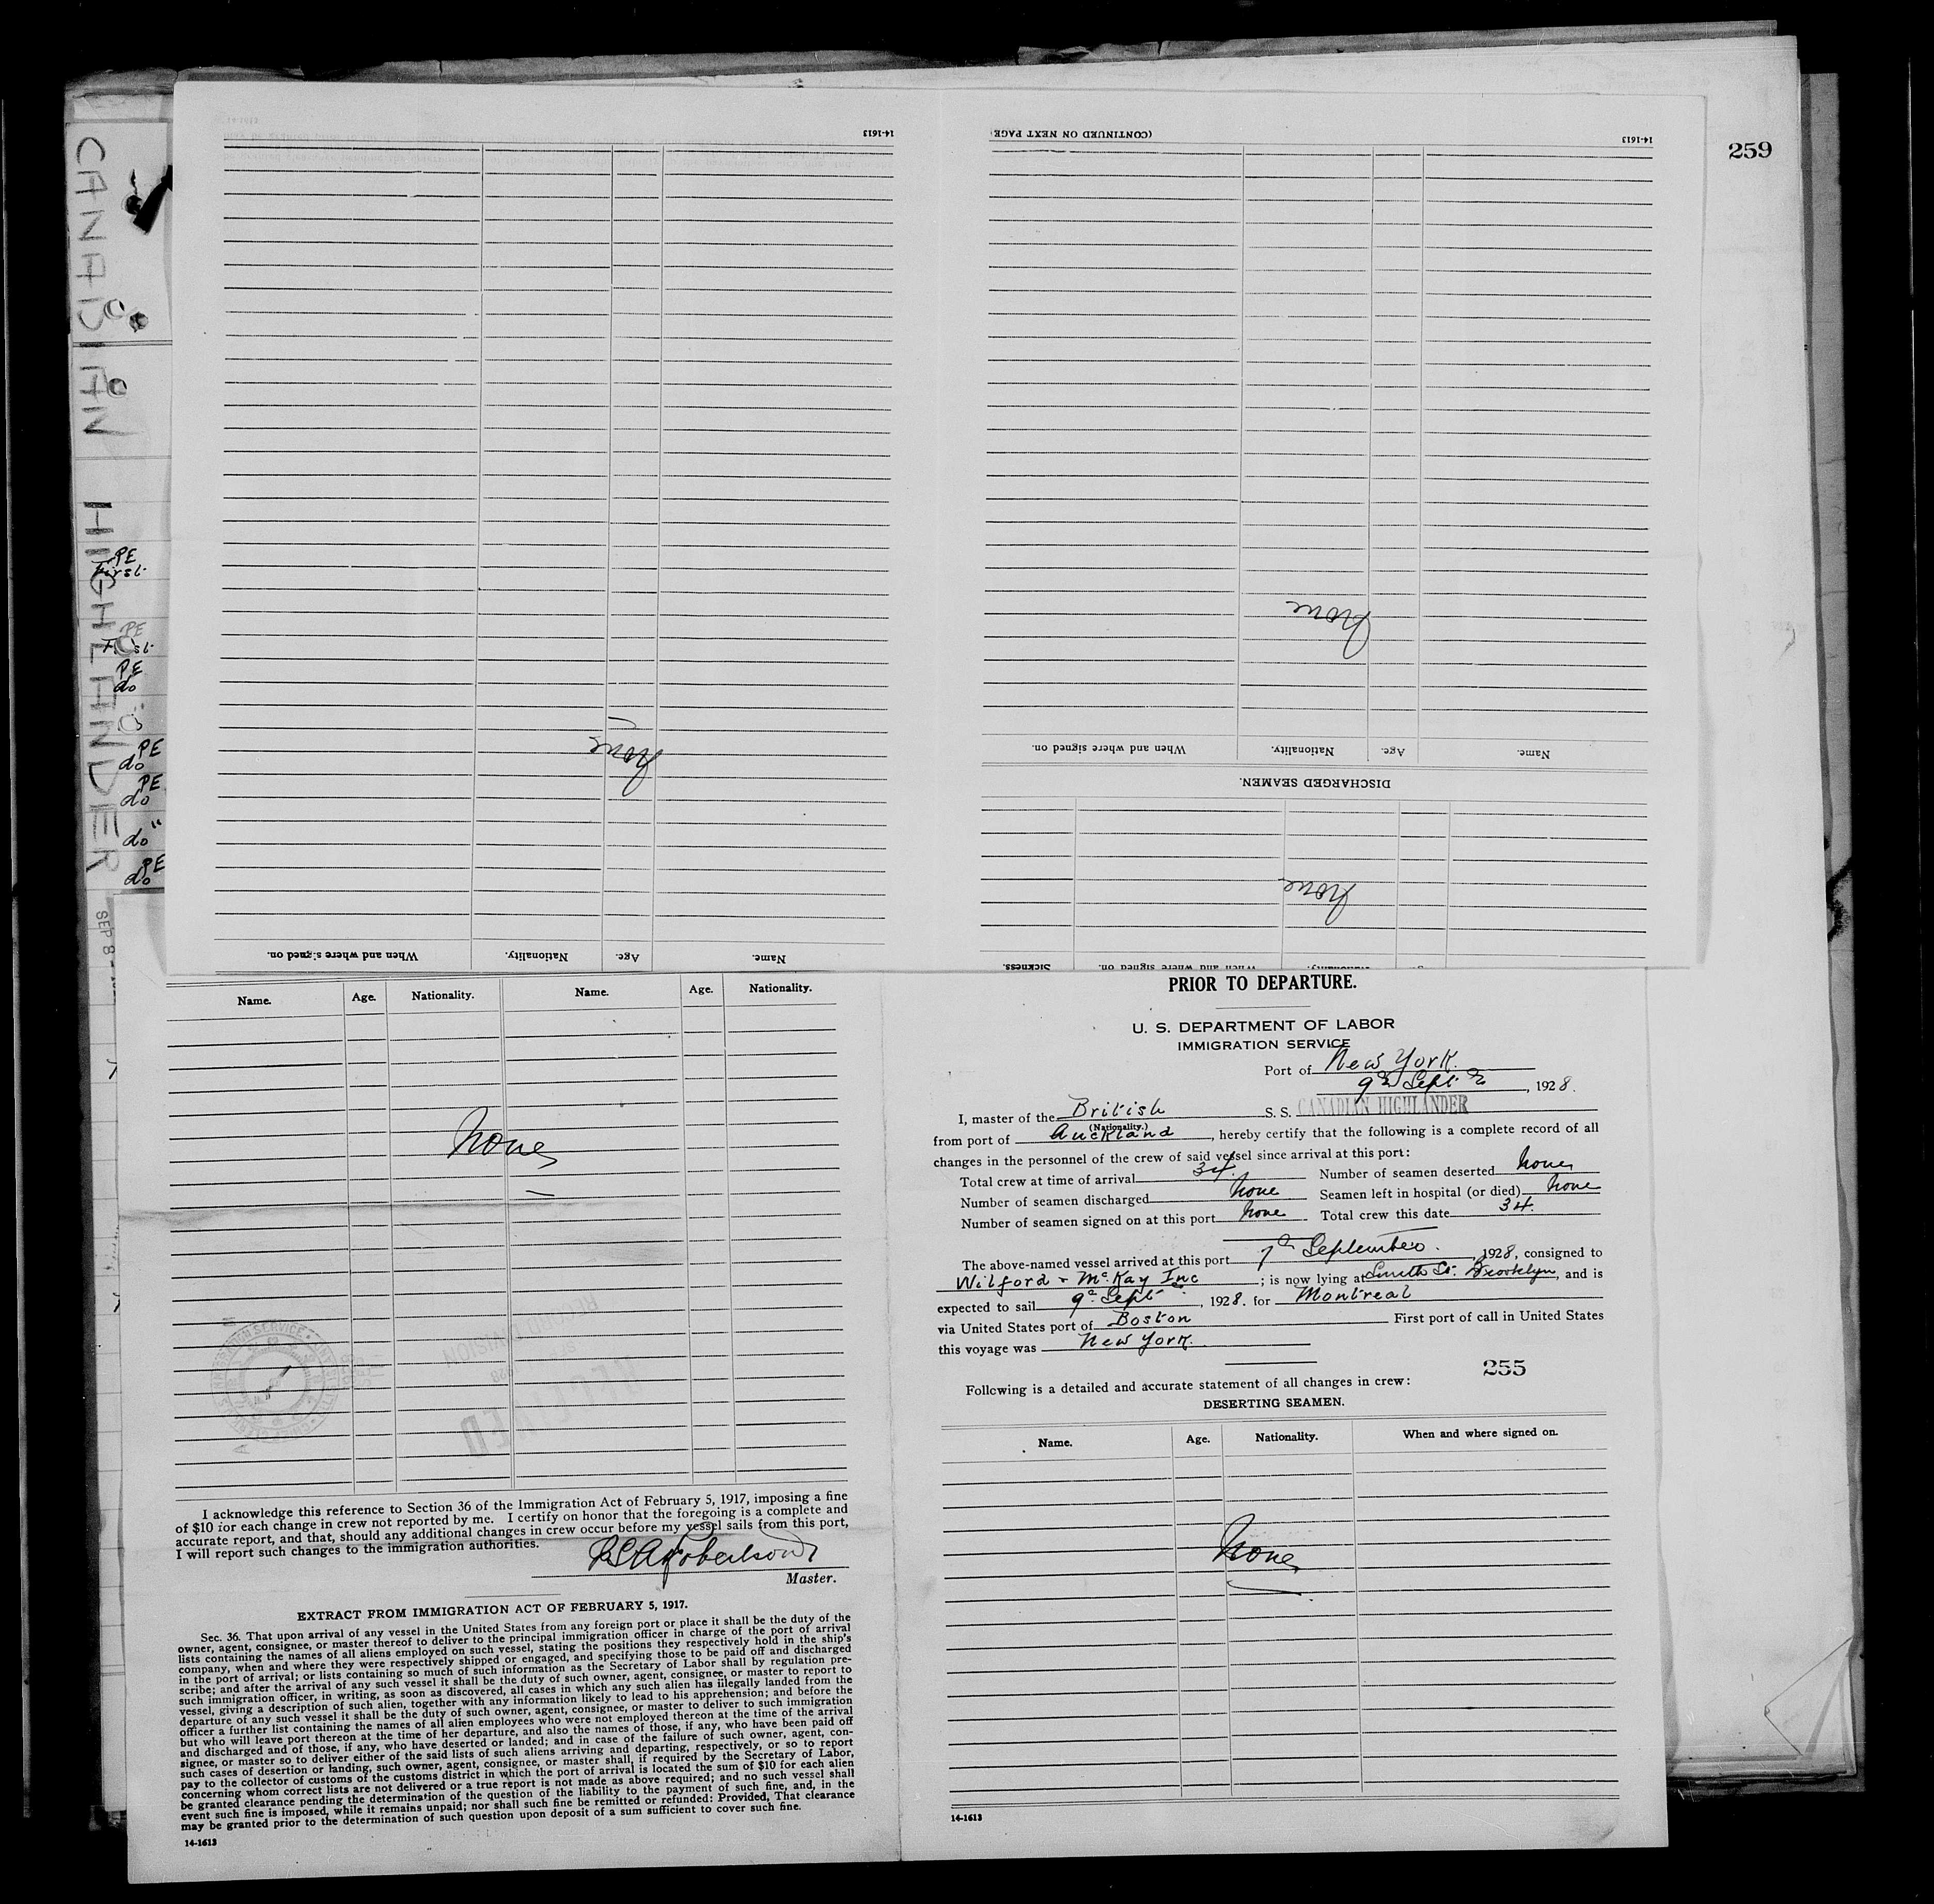 259
CANADIAN HIGHLANDER
PE
First
PE
First
PE
do
PE
do
PE
do
do "
PE
do
SEP 8
14-1613
None
Name. Age. Nationality. When and where signed on.
14-1613
(CONTINUED ON NEXT PAGE)
None
Name. Age. Nationality. When and where signed on.
DISCHARGED SEAMEN.
None
Nationality. When and where signed on. Sickness.
Name. Age. Nationality. Name. Age. Nationality.
None
RECEIVED
RECORD DIVISION
I acknowledge this reference to Section 36 of the Immigration Act of February 5, 1917, imposing a fine
of $10 for each change in crew not reported by me. I certify on honor that the foregoing is a complete and
accurate report, and that, should any additional changes in crew occur before my vessel sails from this port,
I will report such changes to the immigration authorities.
Robertson
Master.
EXTRACT FROM IMMIGRATION ACT OF FEBRUARY 5, 1917.
Sec. 36. That upon arrival of any vessel in the United States from any foreign port or place it shall be the duty of the
owner, agent, consignee, or master thereof to deliver to the principal immigration officer in charge of the port of arrival
lists containing the names of all aliens employed on such vessel, stating the positions they respectively hold in the ship's
company, when and where they were respectively shipped or engaged, and specifying those to be paid off and discharged
in the port of arrival; or lists containing so much of such information as the Secretary of Labor shall by regulation pre-
scribe; and after the arrival of any such vessel it shall be the duty of such owner, agent, consignee, or master to report to
such immigration officer, in writing, as soon as discovered, all cases in which any such alien has illegally landed from the
vessel, giving a description of such alien, together with any information likely to lead to his apprehension; and before the
departure of any such vessel it shall be the duty of such owner, agent, consignee, or master to deliver to such immigration
officer a further list containing the names of all alien employees who were not employed thereon at the time of the arrival
but who will leave port thereon at the time of her departure, and also the names of those, if any, who have been paid off
and discharged and of those, if any, who have deserted or landed; and in case of the failure of such owner, agent, con-
signee, or master so to deliver either of the said lists of such aliens arriving and departing, respectively, or so to report
such cases of desertion or landing, such owner, agent, consignee, or master shall, if required by the Secretary of Labor,
pay to the collector of customs of the customs district in which the port of arrival is located the sum of $10 for each alien
concerning whom correct lists are not delivered or a true report is not made as above required; and no such vessel shall
be granted clearance pending the determination of the question of the liability to the payment of such fine, and, in the
event such fine is imposed, while it remains unpaid; nor shall such fine be remitted or refunded: Provided, That clearance
may be granted prior to the determination of such question upon deposit of a sum sufficient to cover such fine.
14-1613
PRIOR TO DEPARTURE.
U. S. DEPARTMENT OF LABOR
IMMIGRATION SERVICE
Port of New York.
9th Sept., 1928.
I, master of the British S. S. CANADIAN HIGHLANDER
(Nationality.)
from port of Auckland, hereby certify that the following is a complete record of all
changes in the personnel of the crew of said vessel since arrival at this port:
Total crew at time of arrival 34. Number of seamen deserted None
Number of seamen discharged None Seamen left in hospital (or died) None
Number of seamen signed on at this port None Total crew this date 34.
The above-named vessel arrived at this port 7th September., 1928, consigned to
Wilford & McKay Inc; is now lying at Smith St. Brooklyn, and is
expected to sail 9th Sept., 1928. for Montreal
via United States port of Boston First port of call in United States
this voyage was New York.
255
Following is a detailed and accurate statement of all changes in crew:
DESERTING SEAMEN.
Name. Age. Nationality. When and where signed on.
None
14-1613